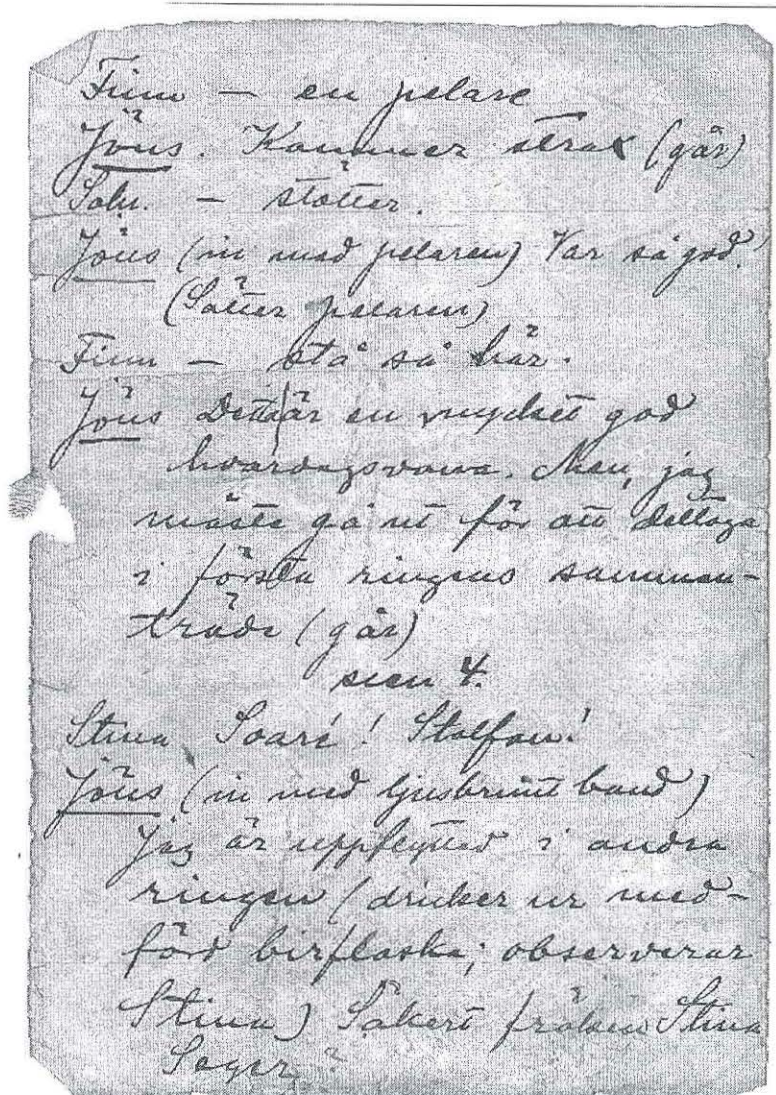 Finn — en pelare
Jöns. Kommer strax (går)
— stötter.
Jöns (in med pelaren) Var så god!
(Sätter pelaren)
Finn — stå så här.
Jöns Detta är en mycket god
hvardagsvara. Men, jag
måste gå ut för att deltaga
i första ringens samman-
träde (går)
scen 4.
Stina Soaré! Staffan!
Jöns (in med ljusbrunt band)
Jag är uppflyttad i andra
ringen (dricker ur med-
förd birflaska; observerar
Stina) Säkert fröken Stina
Seger?